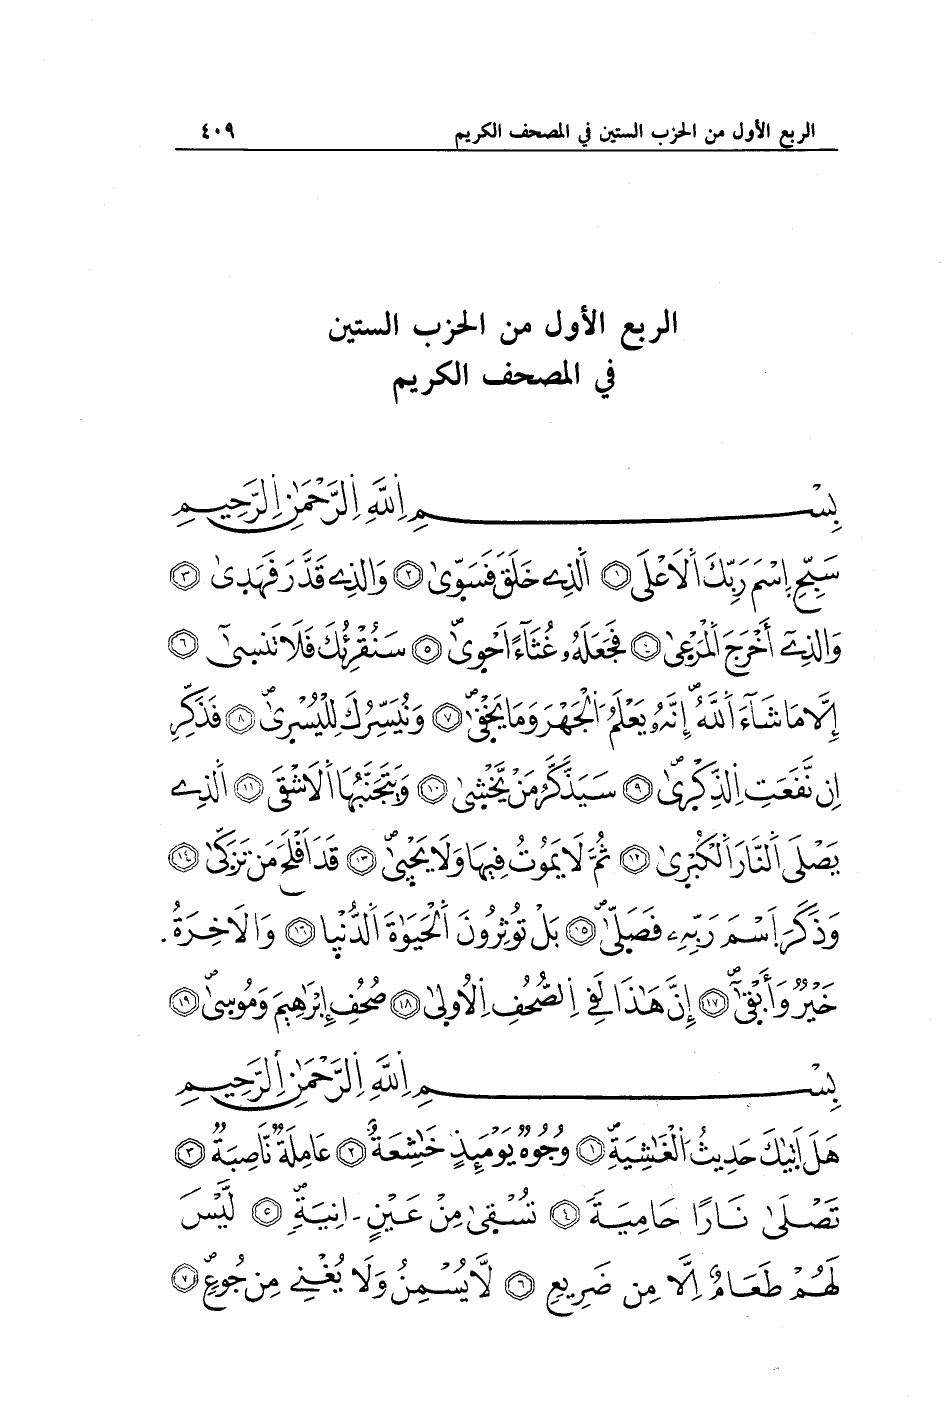 الربع الأول من الحزب الستين في المصحف الكريم ٤٠٩
الربع الأول من الحزب الستين
في المصحف الكريم
بِسْمِ اِللَّهِ اِلرَّحْمَٰنِ اِلرَّحِيمِ
سَبِّحِ اِسْمَ رَبِّكَ اَلَاعْلَى ١ اَلذِے خَلَقَ فَسَوّٜىٰ ٢ وَالذِے قَدَّرَ فَهَدٜىٰ ٣
وَالذِےٓ أَخْرَجَ اَلْمَرْعٜىٰ ٤ فَجَعَلَهُۥ غُثَآءً اَحْوٜىٰۖ ٥ سَنُقْرِئُكَ فَلَا تَنسٜىٰٓ ٦
إِلَّا مَا شَآءَ اَللَّهُۖ إِنَّهُۥ يَعْلَمُ اُلْجَهْرَ وَمَا يَخْفٜىٰۖ ٧ وَنُيَسِّرُكَ لِلْيُسْرٜىٰۖ ٨ فَذَكِّرِ
اِن نَّفَعَتِ اِلذِّكْرٜىٰۖ ٩ سَيَذَّكَّرُ مَنْ يَّخْشٜىٰ ١٠ وَيَتَجَنَّبُهَا اَلَاشْقَى ١١ اَلذِے
يَصْلَى اَلنَّارَ اَلْكُبْرٜىٰ ١٢ ثُمَّ لَا يَمُوتُ فِيهَا وَلَا يَحْيٜىٰۖ ١٣ قَدَ اَفْلَحَ مَن تَزَكّٜىٰ ١٤
وَذَكَرَ اَسْمَ رَبِّهِۦ فَصَلّٜىٰۖ ١٥ بَلْ تُوثِرُونَ اَلْحَيَوٰةَ اَلدُّنْيٜا ١٦ وَالَاخِرَةُ
خَيْرٌ وَأَبْقٜىٰٓۖ ١٧ إِنَّ هَٰذَا لَفِے اِلصُّحُفِ اِلُاولٜىٰ ١٨ صُحُفِ إِبْرَٰهِيمَ وَمُوسٜىٰۖ ١٩
بِسْمِ اِللَّهِ اِلرَّحْمَٰنِ اِلرَّحِيمِ
هَلَ اَتٜيٰكَ حَدِيثُ اُلْغَٰشِيَةِۖ ١ وُجُوهٌ يَوْمَئِذٍ خَٰشِعَةٌ ٢ عَامِلَةٌ نَّاصِبَةٌ ٣
تَصْلَىٰ نَارًا حَامِيَةً ٤ تُسْقٜىٰ مِنْ عَيْنٍ اٰنِيَةٍۖ ٥ لَّيْسَ
لَهُمْ طَعَامٌ اِلَّا مِن ضَرِيعٍ ٦ لَّا يُسْمِنُ وَلَا يُغْنِے مِن جُوعٍۖ ٧